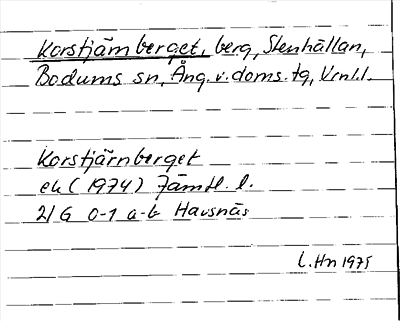 Korstjärnberget, berg, Stenhällan,
Bodums sn, Ång. v. doms. tg, Vrnl.l.
Korstjärnberget
ek (1974) Jämtl. l.
21 G 0-1 a-b Havsnäs
L. Hn 1975